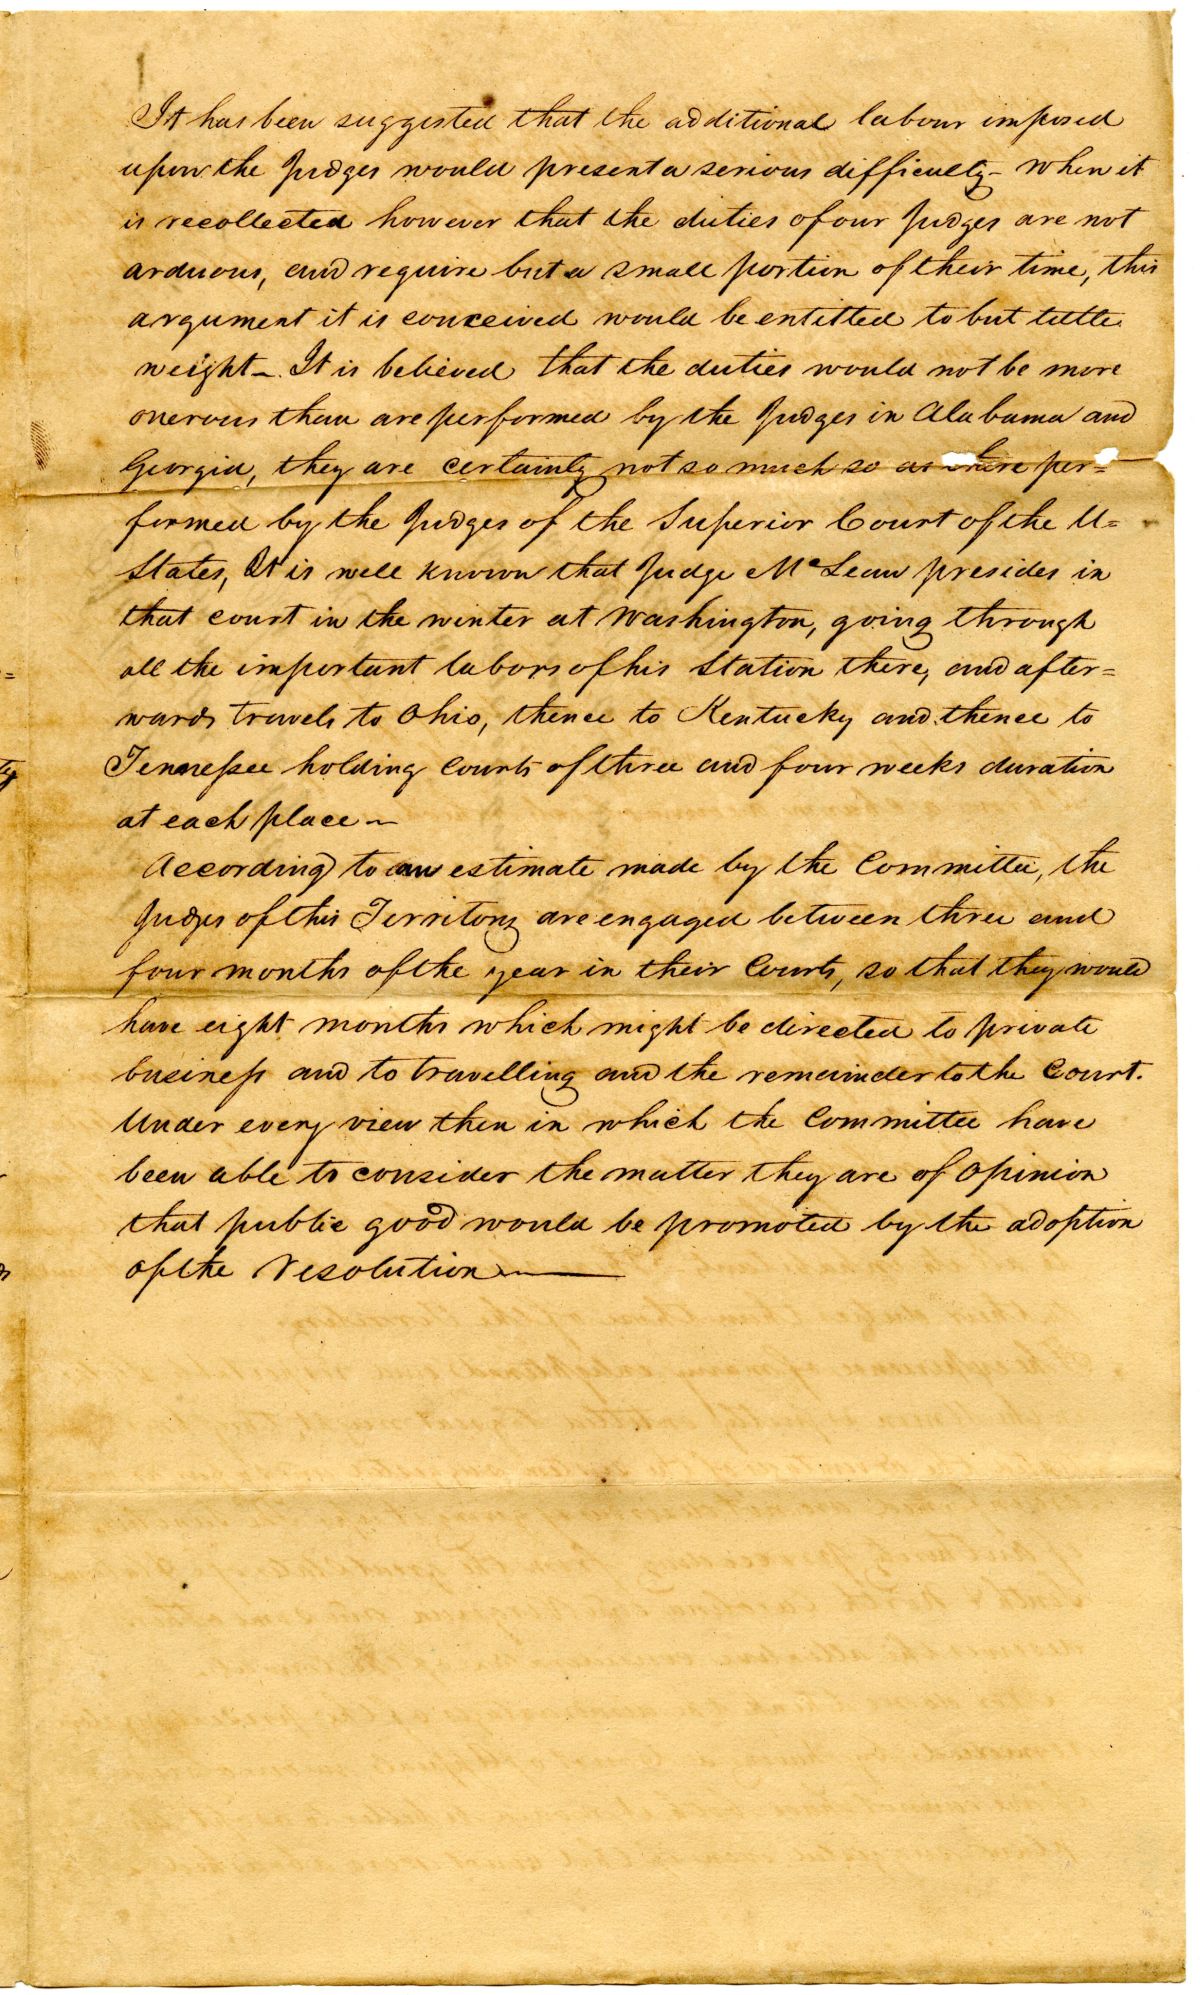 It has been suggested that the additional labour imposed
upon the Judges would present a serious difficulty – When it
is recollected however that the duties of our Judges are not
arduous, and require but a small portion of their time, this
argument it is conceived would be entitled to but little
weight – It is believed that the duties would not be more
onerous than are performed by the Judges in Alabama and
Georgia, they are certainly not so much so as there per=
formed by the Judges of the Superior Court of the U=
States, It is well known that Judge McLean presides in
that court in the winter at Washington, going through
all the important labors of his Station there, and after=
wards travels to Ohio, thence to Kentucky and thence to
Tennessee holding Courts of three and four weeks duration
at each place –
According to an estimate made by the Committee, the
Judges of this Territory are engaged between three and
four months of the year in their Courts, so that they would
have eight months which might be directed to private
business and to travelling and the remainder to the Court.
Under every view then in which the Committee have
been able to consider the matter they are of opinion
that public good would be promoted by the adoption
of the resolution ———